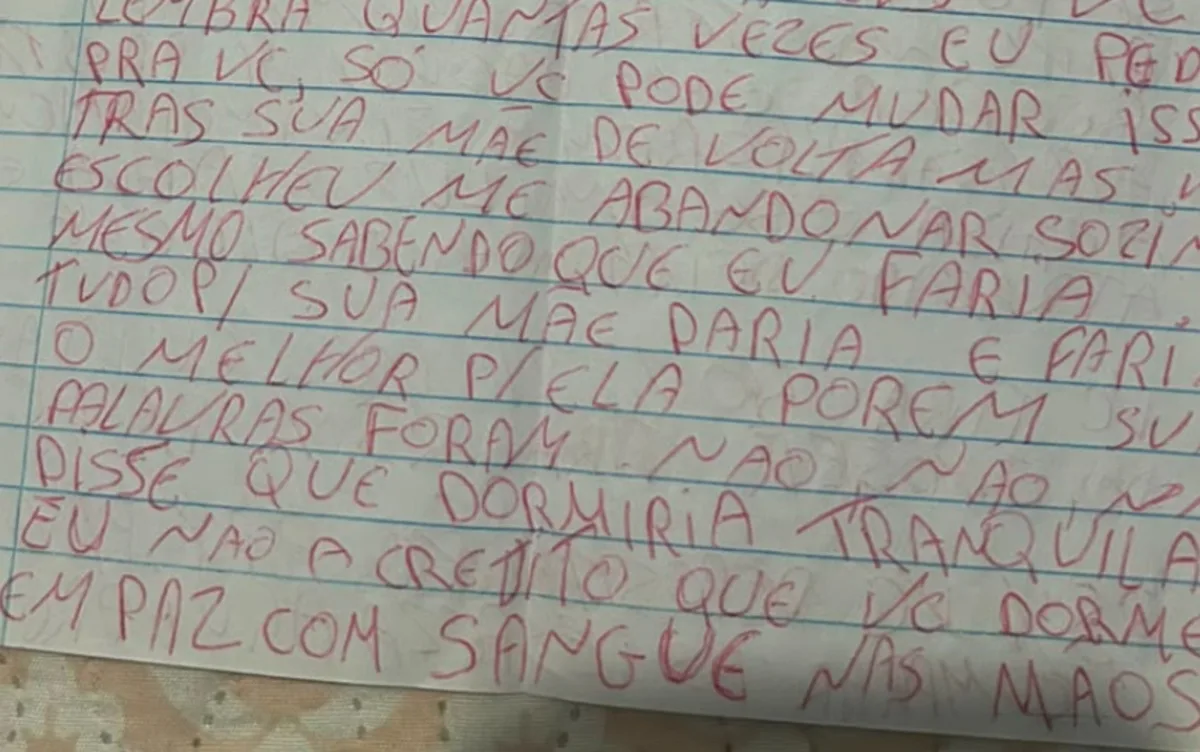 LEMBRA QUANTAS VEZES EU PED
PRA VC, SÓ VC PODE MUDAR ISS
TRAS SUA MAE DE VOLTA MAS V
ESCOLHEU ME ABANDONAR SOZIN
MESMO SABENDO QUE EU FARIA
TUDO P/ SUA MAE DARIA E FARI
O MELHOR P/ ELA POREM SU
PALAVRAS FORAM NAO NAO NA
DISSE QUE DORMIRIA TRANQUILA
EU NAO ACREDITO QUE VC DORME
EM PAZ COM SANGUE NAS MAOS